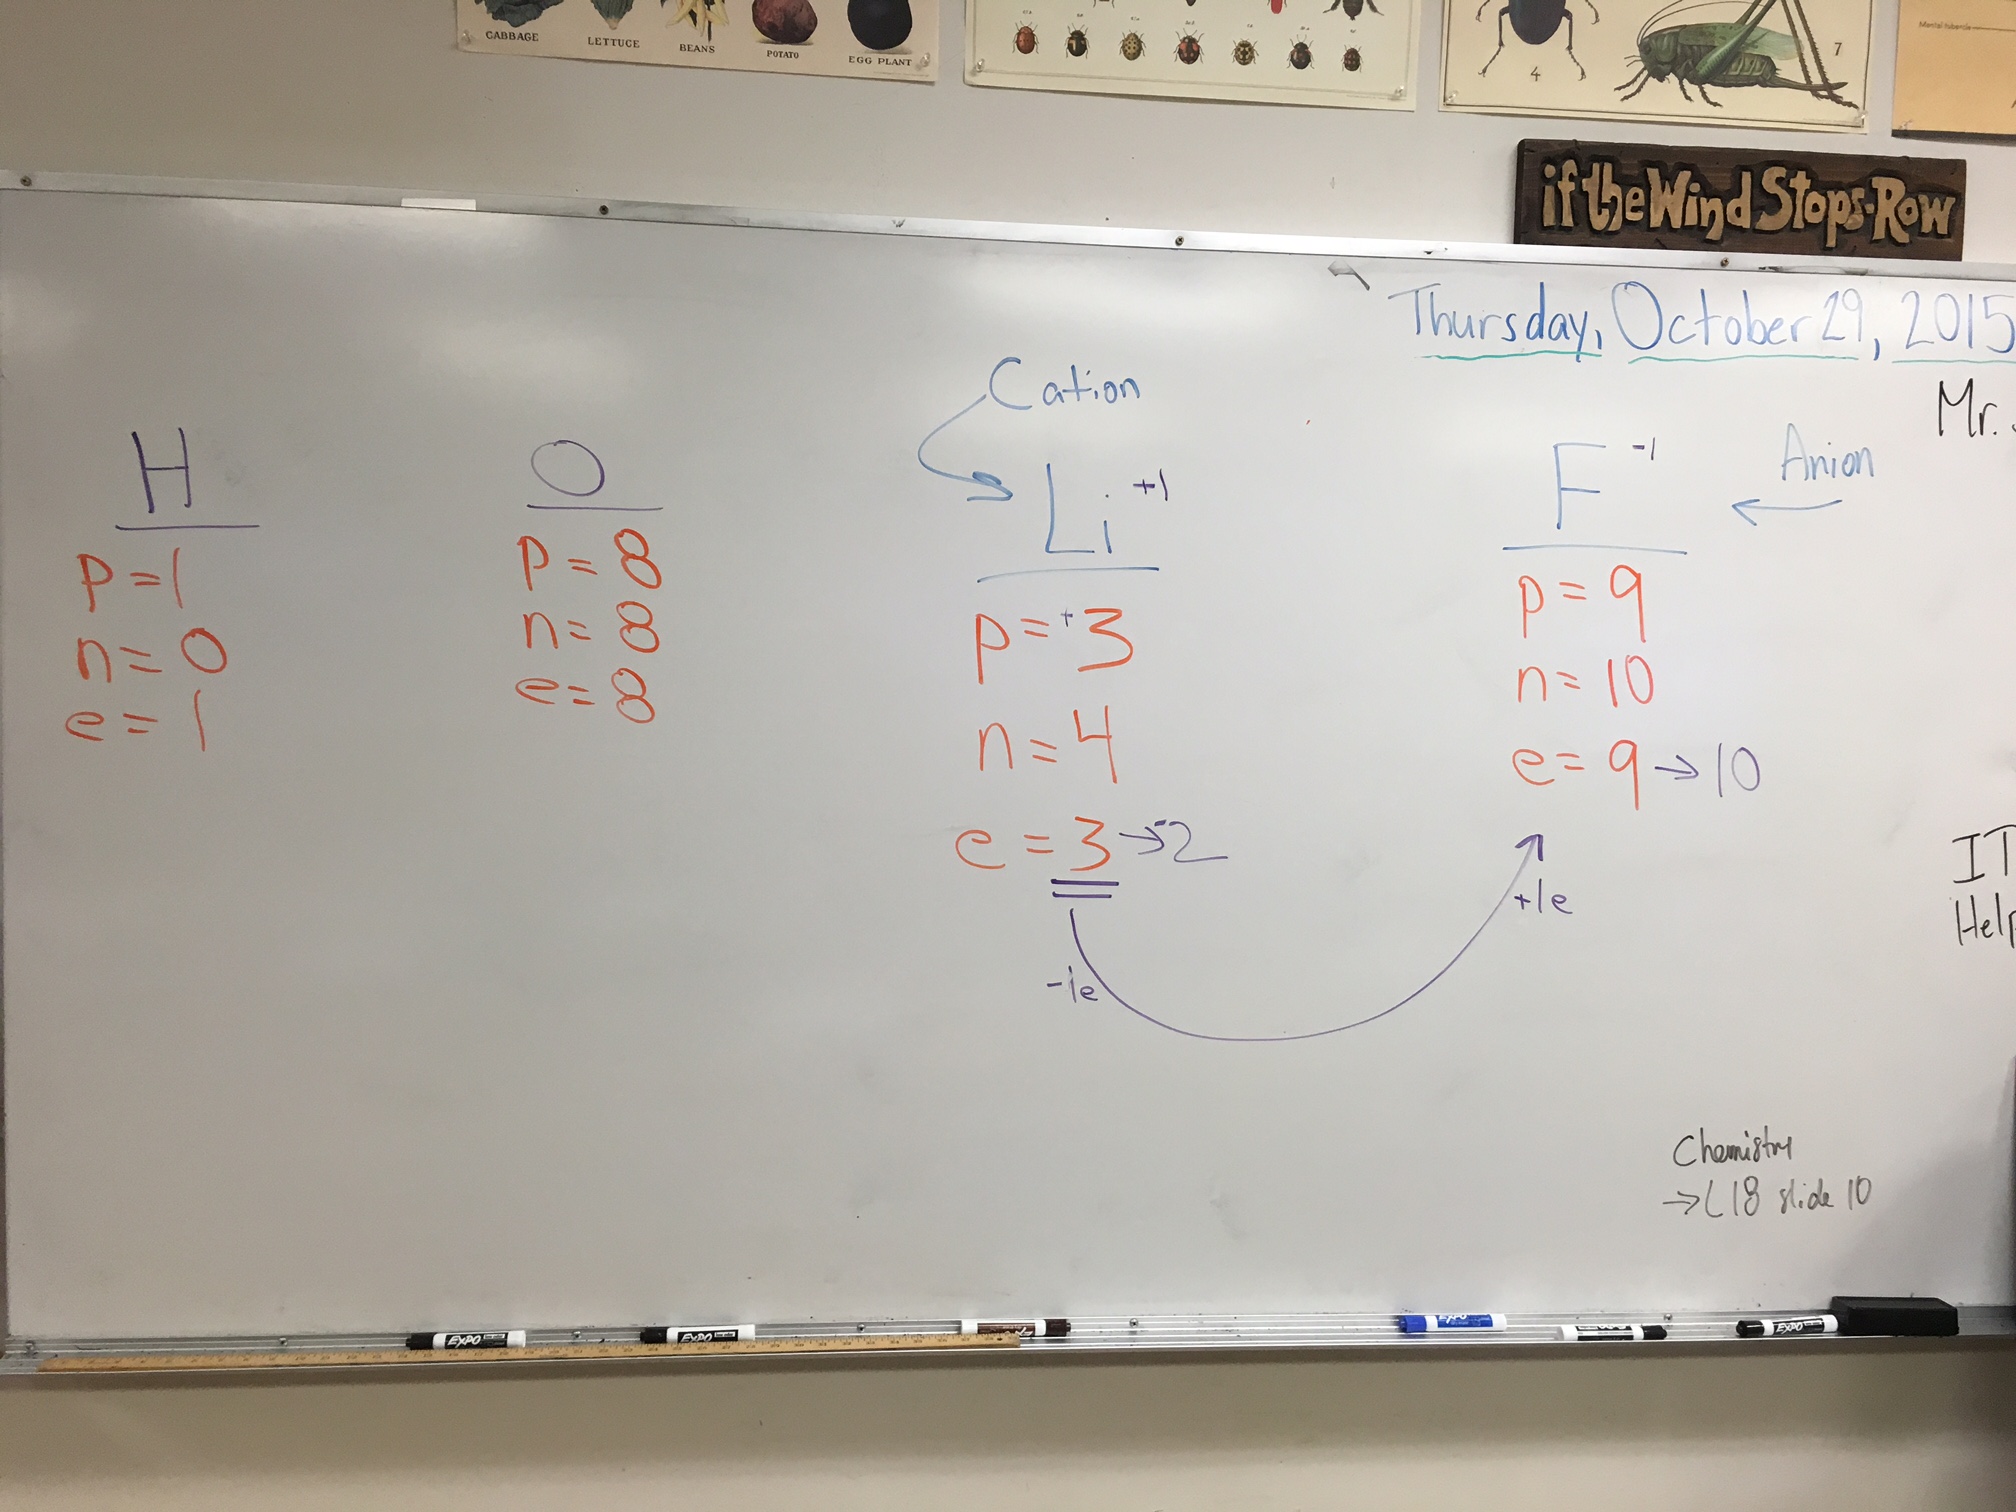 CABBAGE
LETTUCE
BEANS
POTATO
EGG PLANT
4
7
if the Wind Stops-Row
Thursday, October 29, 2015
Mr.
H
p = 1
n = 0
e = 1
O
p = 8
n = 8
e = 8
Cation
Li +1
p = +3
n = 4
e = 3 → -2
-1e
Anion
F -1
←
p = 9
n = 10
e = 9 → 10
+1e
IT
Help
Chemistry
→ L18 slide 10
EXPO
EXPO
EXPO
EXPO